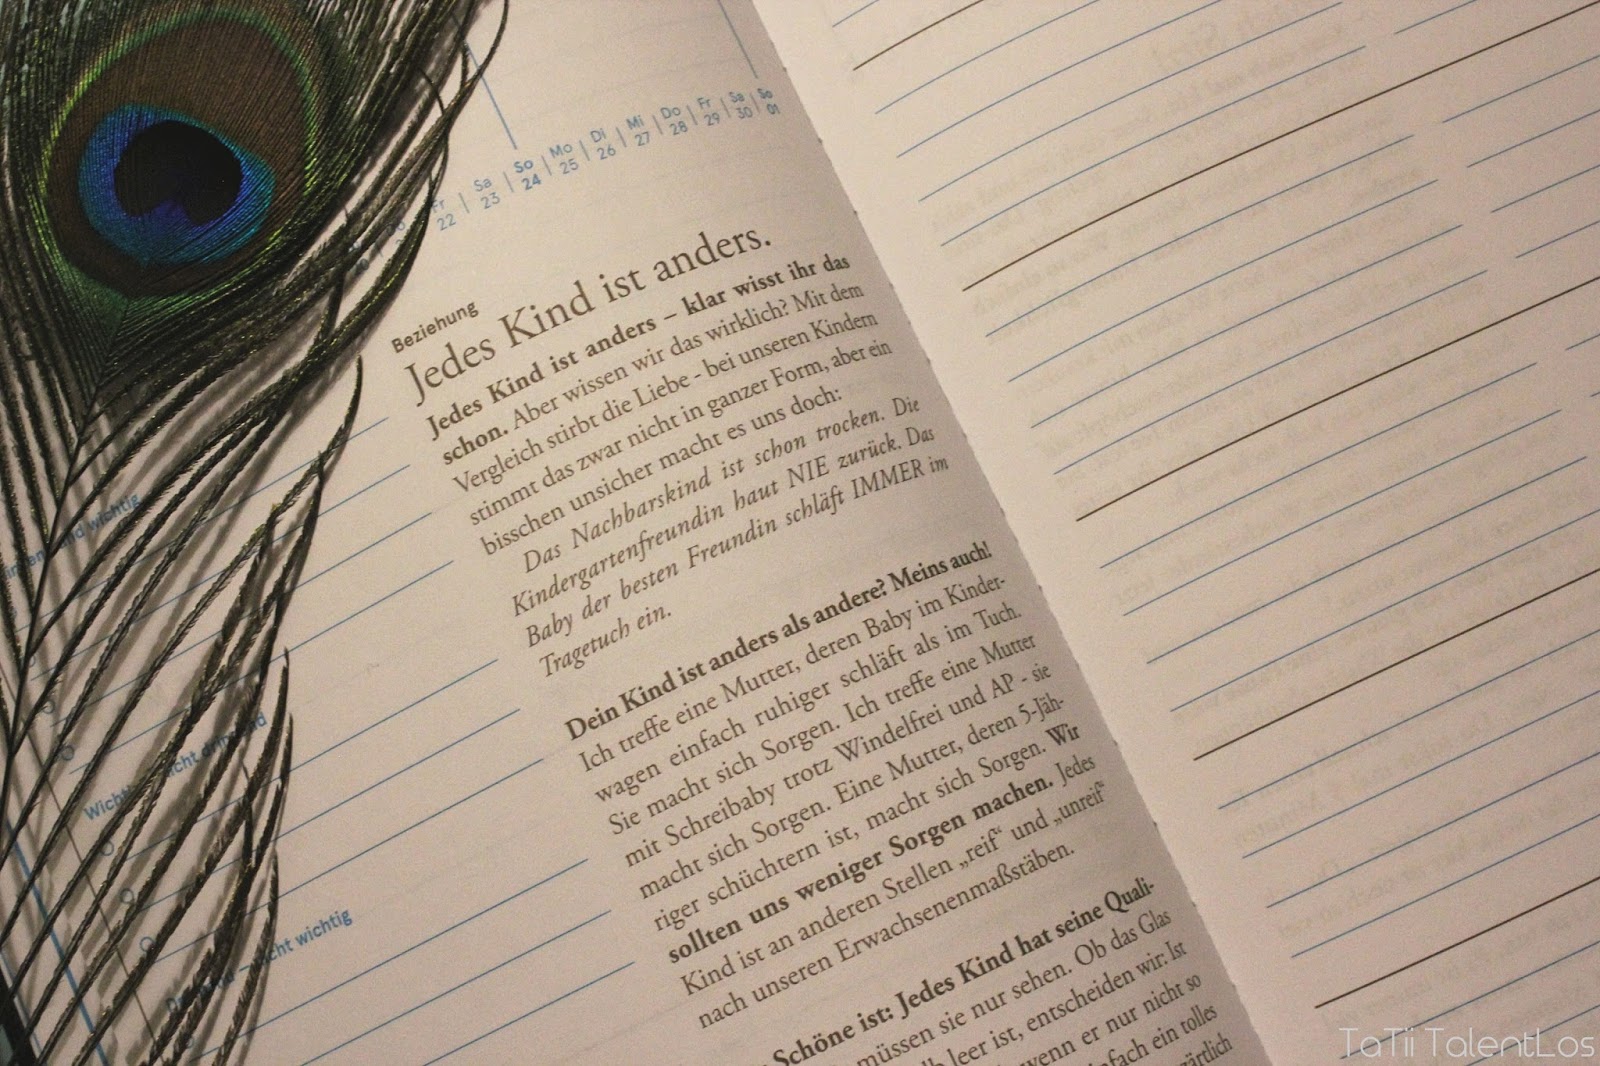 Fr Sa So Mo Di Mi Do Fr Sa So
22 23 24 25 26 27 28 29 30 01
Beziehung
Jedes Kind ist anders.
Jedes Kind ist anders – klar wisst ihr das
schon. Aber wissen wir das wirklich? Mit dem
Vergleich stirbt die Liebe - bei unseren Kindern
stimmt das zwar nicht in ganzer Form, aber ein
bisschen unsicher macht es uns doch:
Das Nachbarskind ist schon trocken. Die
Kindergartenfreundin haut NIE zurück. Das
Baby der besten Freundin schläft IMMER im
Tragetuch ein.
Dein Kind ist anders als andere? Meins auch!
Ich treffe eine Mutter, deren Baby im Kinder-
wagen einfach ruhiger schläft als im Tuch.
Sie macht sich Sorgen. Ich treffe eine Mutter
mit Schreibaby trotz Windelfrei und AP - sie
macht sich Sorgen. Eine Mutter, deren 5-Jäh-
riger schüchtern ist, macht sich Sorgen. Wir
sollten uns weniger Sorgen machen. Jedes
Kind ist an anderen Stellen „reif“ und „unreif“
nach unseren Erwachsenenmaßstäben.
Schöne ist: Jedes Kind hat seine Quali-
müssen sie nur sehen. Ob das Glas
leer ist, entscheiden wir: Ist
wenn er nur nicht so
ein tolles
und wichtig
Wichtig
nicht wichtig
TaTii TalentLos